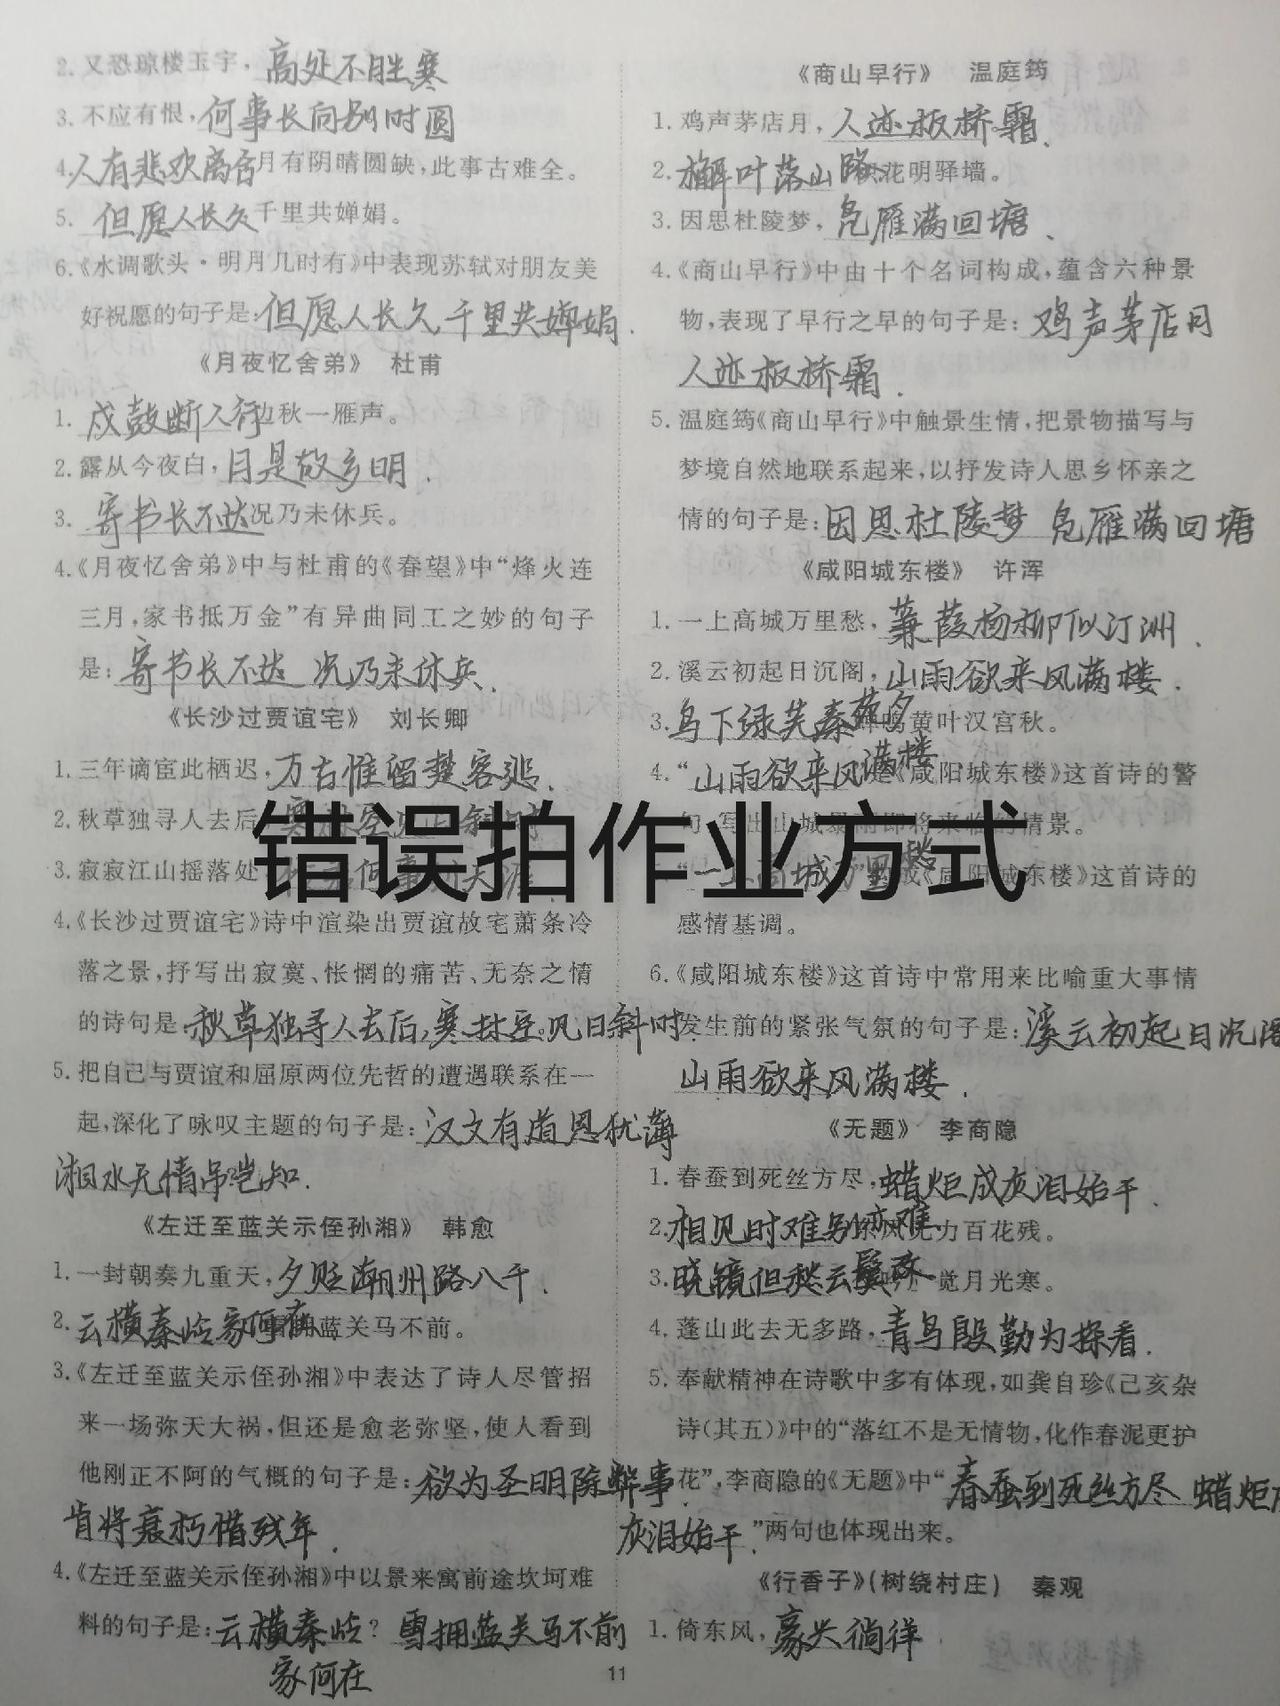 2. 又恐琼楼玉宇，高处不胜寒
3. 不应有恨，何事长向别时圆
4. 人有悲欢离合月有阴晴圆缺，此事古难全。
5. 但愿人长久千里共婵娟。
6.《水调歌头·明月几时有》中表现苏轼对朋友美
好祝愿的句子是：但愿人长久 千里共婵娟.
《月夜忆舍弟》 杜甫
1. 戍鼓断人行边秋一雁声。
2. 露从今夜白，月是故乡明.
3. 寄书长不达况乃未休兵。
4.《月夜忆舍弟》中与杜甫的《春望》中“烽火连
三月，家书抵万金”有异曲同工之妙的句子
是：寄书长不达 况乃未休兵.
《长沙过贾谊宅》 刘长卿
1. 三年谪宦此栖迟，万古惟留楚客悲.
2. 秋草独寻人去后
3. 寂寂江山摇落处
错误拍作业方式
4.《长沙过贾谊宅》诗中渲染出贾谊故宅萧条冷
落之景，抒写出寂寞、怅惘的痛苦、无奈之情
的诗句是：秋草独寻人去后，寒林空见日斜时.
5. 把自己与贾谊和屈原两位先哲的遭遇联系在一
起，深化了咏叹主题的句子是：汉文有道恩犹薄
湘水无情吊岂知.
《左迁至蓝关示侄孙湘》 韩愈
1. 一封朝奏九重天，夕贬潮州路八千.
2. 云横秦岭家何在蓝关马不前。
3.《左迁至蓝关示侄孙湘》中表达了诗人尽管招
来一场弥天大祸，但还是愈老弥坚，使人看到
他刚正不阿的气概的句子是：欲为圣明除弊事
肯将衰朽惜残年.
4.《左迁至蓝关示侄孙湘》中以景来寓前途坎坷难
料的句子是：云横秦岭？雪拥蓝关马不前
家何在
《商山早行》 温庭筠
1. 鸡声茅店月，人迹板桥霜.
2. 槲叶落山路花明驿墙。
3. 因思杜陵梦，凫雁满回塘.
4.《商山早行》中由十个名词构成，蕴含六种景
物，表现了早行之早的句子是：鸡声茅店月
人迹板桥霜.
5. 温庭筠《商山早行》中触景生情，把景物描写与
梦境自然地联系起来，以抒发诗人思乡怀亲之
情的句子是：因思杜陵梦 凫雁满回塘
《咸阳城东楼》 许浑
1. 一上高城万里愁，蒹葭杨柳似汀洲.
2. 溪云初起日沉阁，山雨欲来风满楼.
3. 鸟下绿芜秦苑夕蝉鸣黄叶汉宫秋。
4. “山雨欲来风满楼《咸阳城东楼》这首诗的警
句，写出山城暴雨即将来临的情景。
《咸阳城东楼》这首诗的
感情基调。
6.《咸阳城东楼》这首诗中常用来比喻重大事情
发生前的紧张气氛的句子是：溪云初起日沉阁
山雨欲来风满楼.
《无题》 李商隐
1. 春蚕到死丝方尽，蜡炬成灰泪始干.
2. 相见时难别亦难东风无力百花残。
3. 晓镜但愁云鬓改觉月光寒。
4. 蓬山此去无多路，青鸟殷勤为探看.
5. 奉献精神在诗歌中多有体现，如龚自珍《己亥杂
诗（其五）》中的“落红不是无情物，化作春泥更护
花”，李商隐的《无题》中“春蚕到死丝方尽 蜡炬成
灰泪始干.”两句也体现出来。
《行香子》（树绕村庄） 秦观
1. 倚东风，豪兴徜徉
11